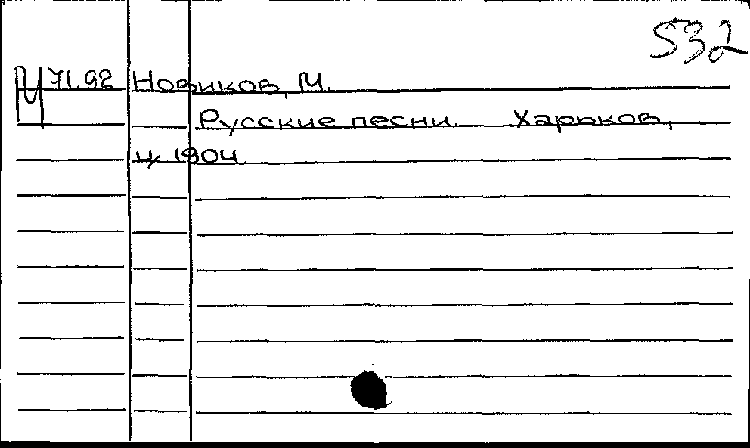 532
И 71.92 Новиков, М.
Русские песни. Харьков,
ц. 1904